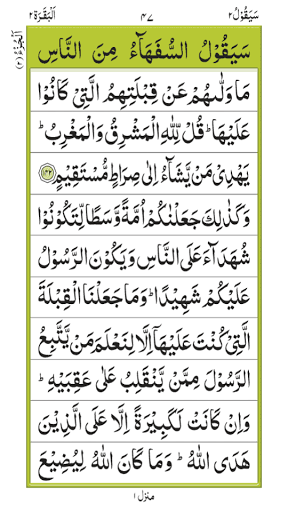 سَيَقُوْلُ٢ ٤٧ اَلْبَقَرَة٢
اَلْجُزْءُ (٢)
سَيَقُوْلُ السُّفَهَآءُ مِنَ النَّاسِ
مَا وَلّٰىهُمْ عَنْ قِبْلَتِهِمُ الَّتِيْ كَانُوْا
عَلَيْهَا ؕ قُلْ لِّلّٰهِ الْمَشْرِقُ وَالْمَغْرِبُ ؕ
يَهْدِيْ مَنْ يَّشَآءُ اِلٰى صِرَاطٍ مُّسْتَقِيْمٍ ﴿١٤٢﴾
وَكَذٰلِكَ جَعَلْنٰكُمْ اُمَّةً وَّسَطًا لِّتَكُوْنُوْا
شُهَدَآءَ عَلَى النَّاسِ وَيَكُوْنَ الرَّسُوْلُ
عَلَيْكُمْ شَهِيْدًا ؕ وَمَا جَعَلْنَا الْقِبْلَةَ
الَّتِيْ كُنْتَ عَلَيْهَآ اِلَّا لِنَعْلَمَ مَنْ يَّتَّبِعُ
الرَّسُوْلَ مِمَّنْ يَّنْقَلِبُ عَلٰى عَقِبَيْهِ ؕ
وَاِنْ كَانَتْ لَكَبِيْرَةً اِلَّا عَلَى الَّذِيْنَ
هَدَى اللّٰهُ ؕ وَمَا كَانَ اللّٰهُ لِيُضِيْعَ
منزل ١